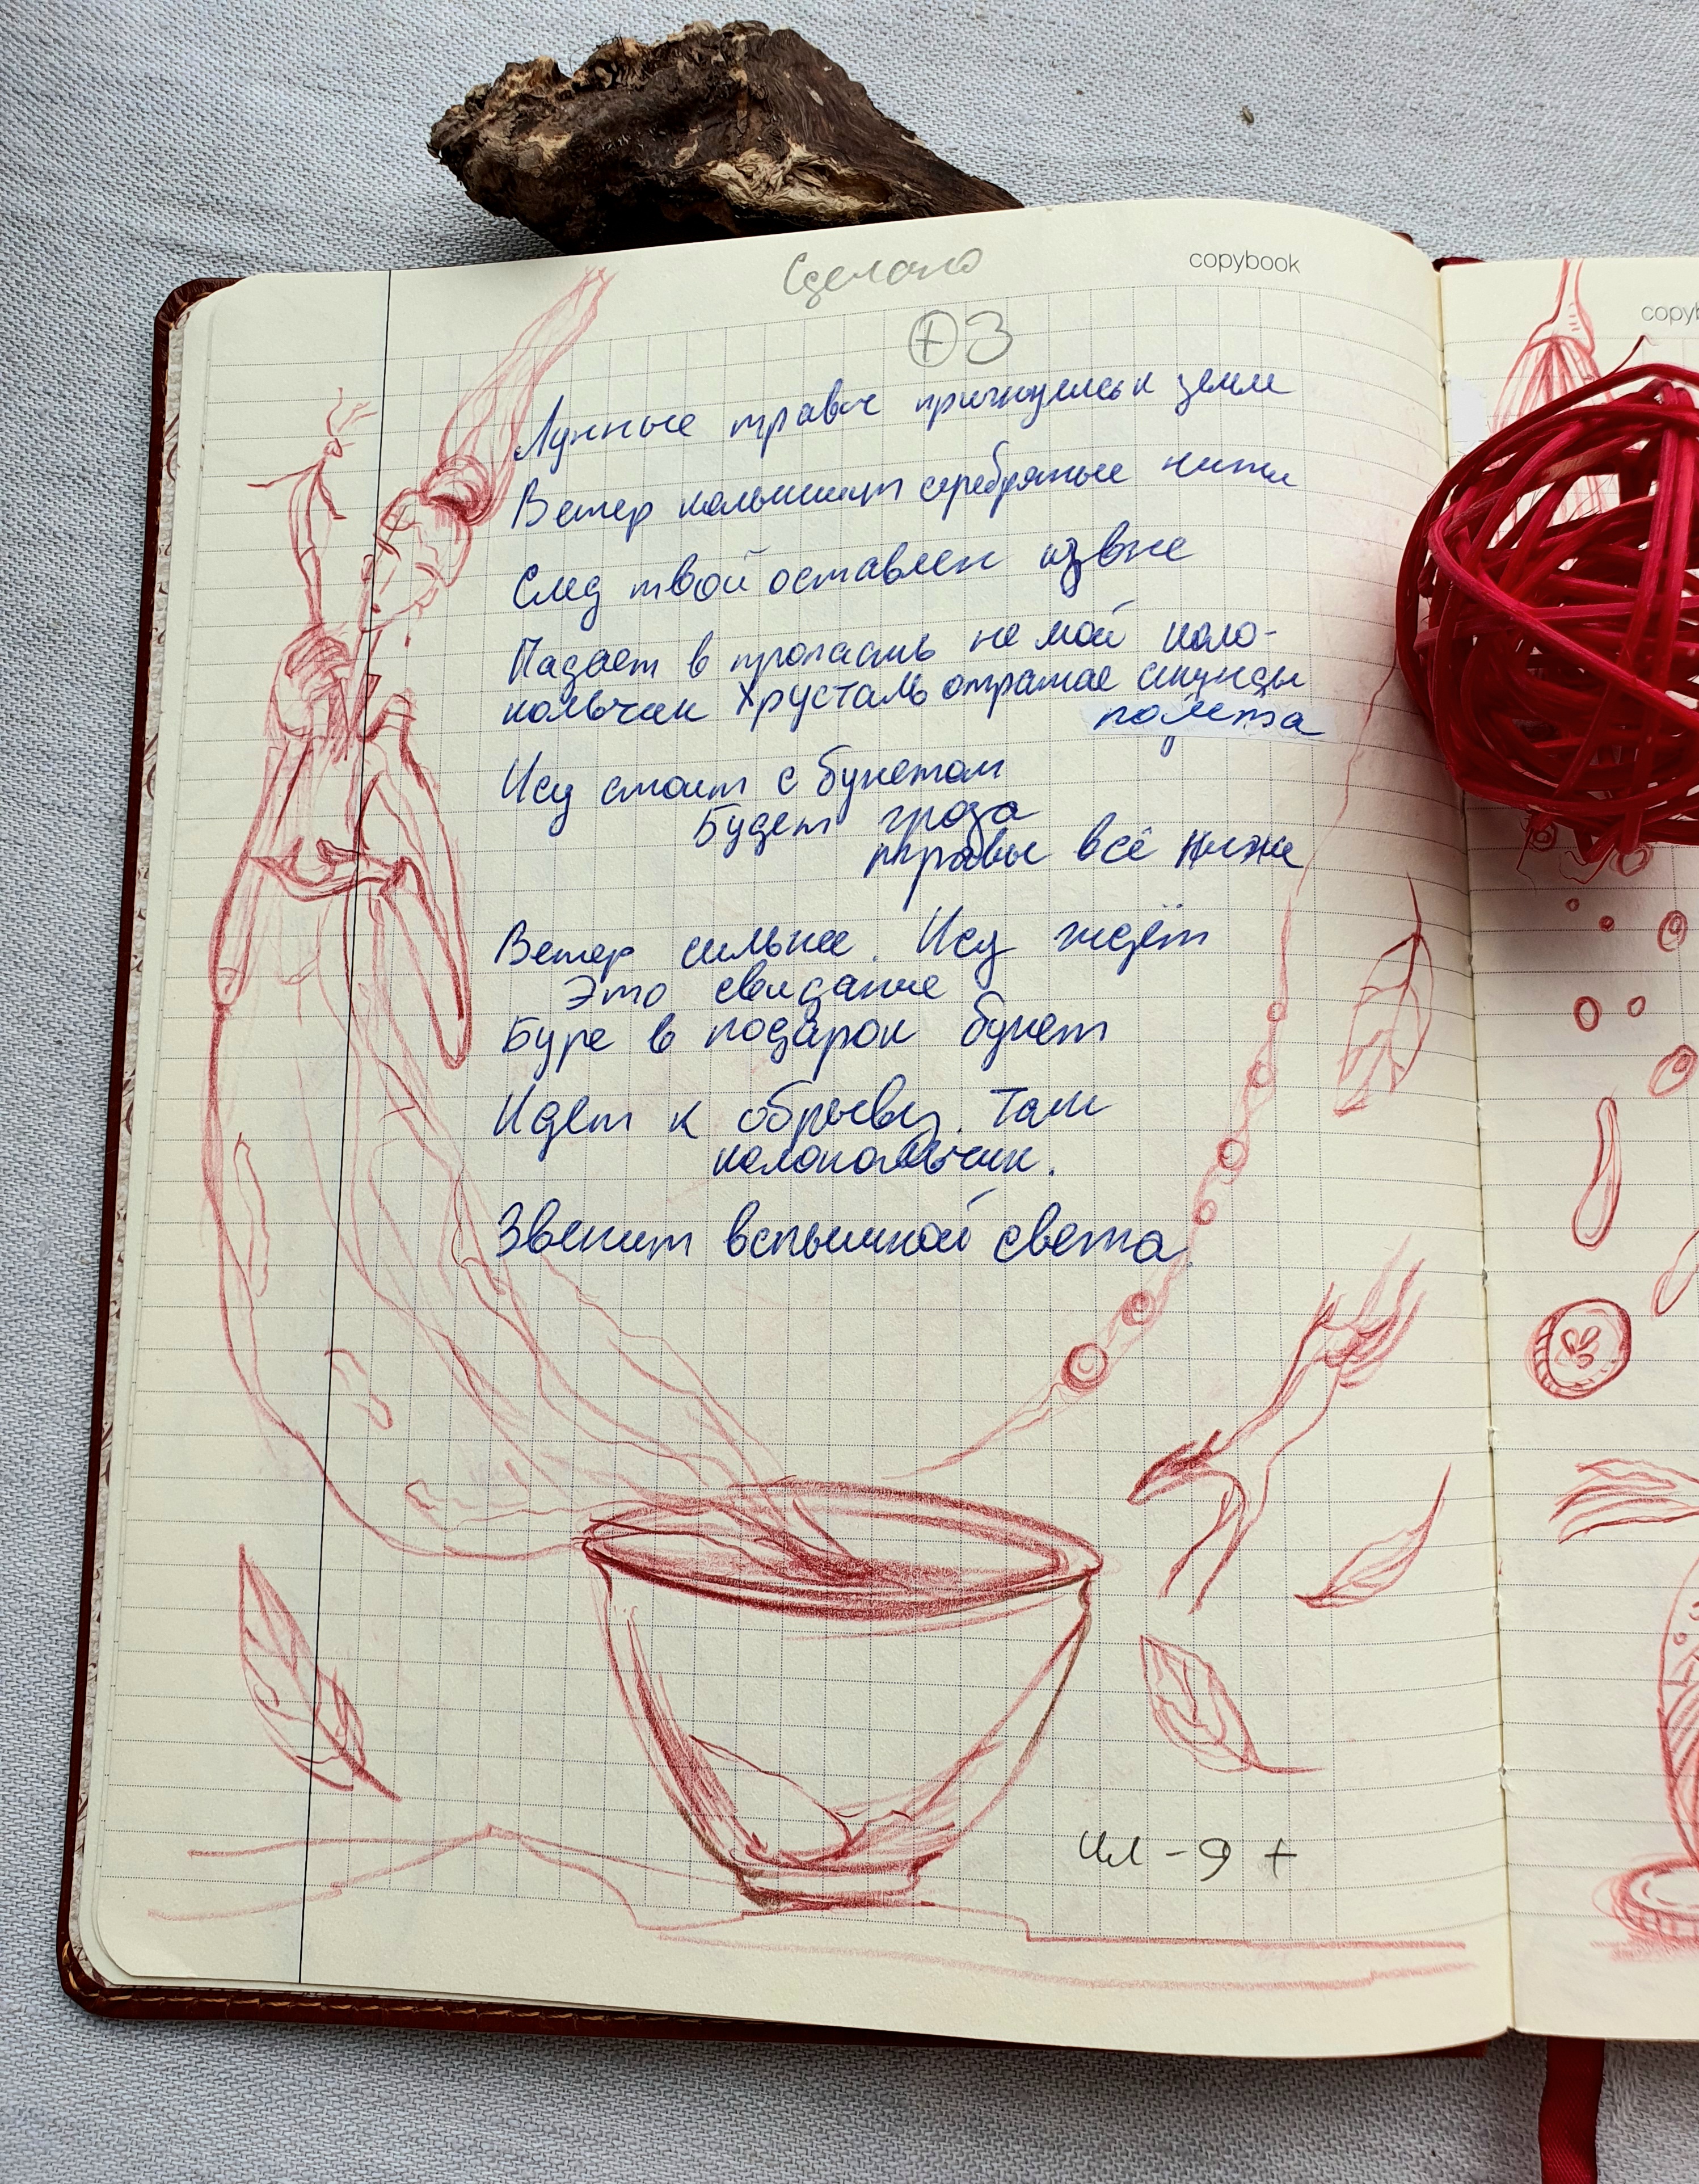 Сделано
copybook
+ 3
Лунные травы пригнулись к земле
Ветер колышит серебряные нити
След твой оставлен извне
Падает в пропасть не мой коло-
кольчик Хрусталь отражае секунды
полёта
Ису стоит с букетом
Будет гроза
травы всё ниже
Ветер сильнее. Ису ждёт
Это свидание
Буре в подарок букет
Идет к обрыву. Там
колокольчик.
Звенит вспышкой света
- 9 +
copyb